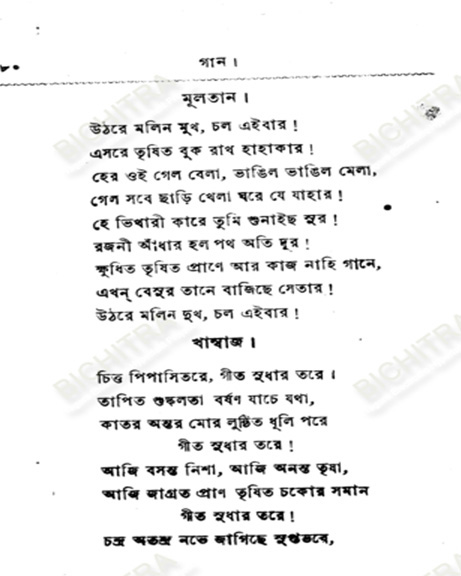 গান।
মূলতান।
উঠরে মলিন মুখ, চল এইবার!
এসরে তৃষিত বুক রাখ হাহাকার!
হের ওই গেল বেলা, ভাঙিল ভাঙিল মেলা,
গেল সবে ছাড়ি খেলা ঘরে যে যাহার!
হে ভিখারী কারে তুমি শুনাইছ সুর!
রজনী আঁধার হল পথ অতি দূর!
ক্ষুধিত তৃষিত প্রাণে আর কাজ নাহি গানে,
এখন্ বেসুর তানে বাজিছে সেতার!
উঠরে মলিন মুখ, চল এইবার!
খাম্বাজ।
চিত্ত পিপাসিতরে, গীত সুধার তরে।
তাপিত শুষ্কলতা বর্ষণ যাচে যথা,
কাতর অন্তর মোর লুণ্ঠিত ধূলি পরে
গীত সুধার তরে!
আজি বসন্ত নিশা, আজি অনন্ত তৃষা,
আজি জাগ্রত প্রাণ তৃষিত চকোর সমান
গীত সুধার তরে!
চন্দ্র অতন্দ্র নভে জাগিছে সুপ্তভবে,
BICHITRA
BICHITRA
BICHITRA
BICHITRA
BICHITRA
BICHITRA